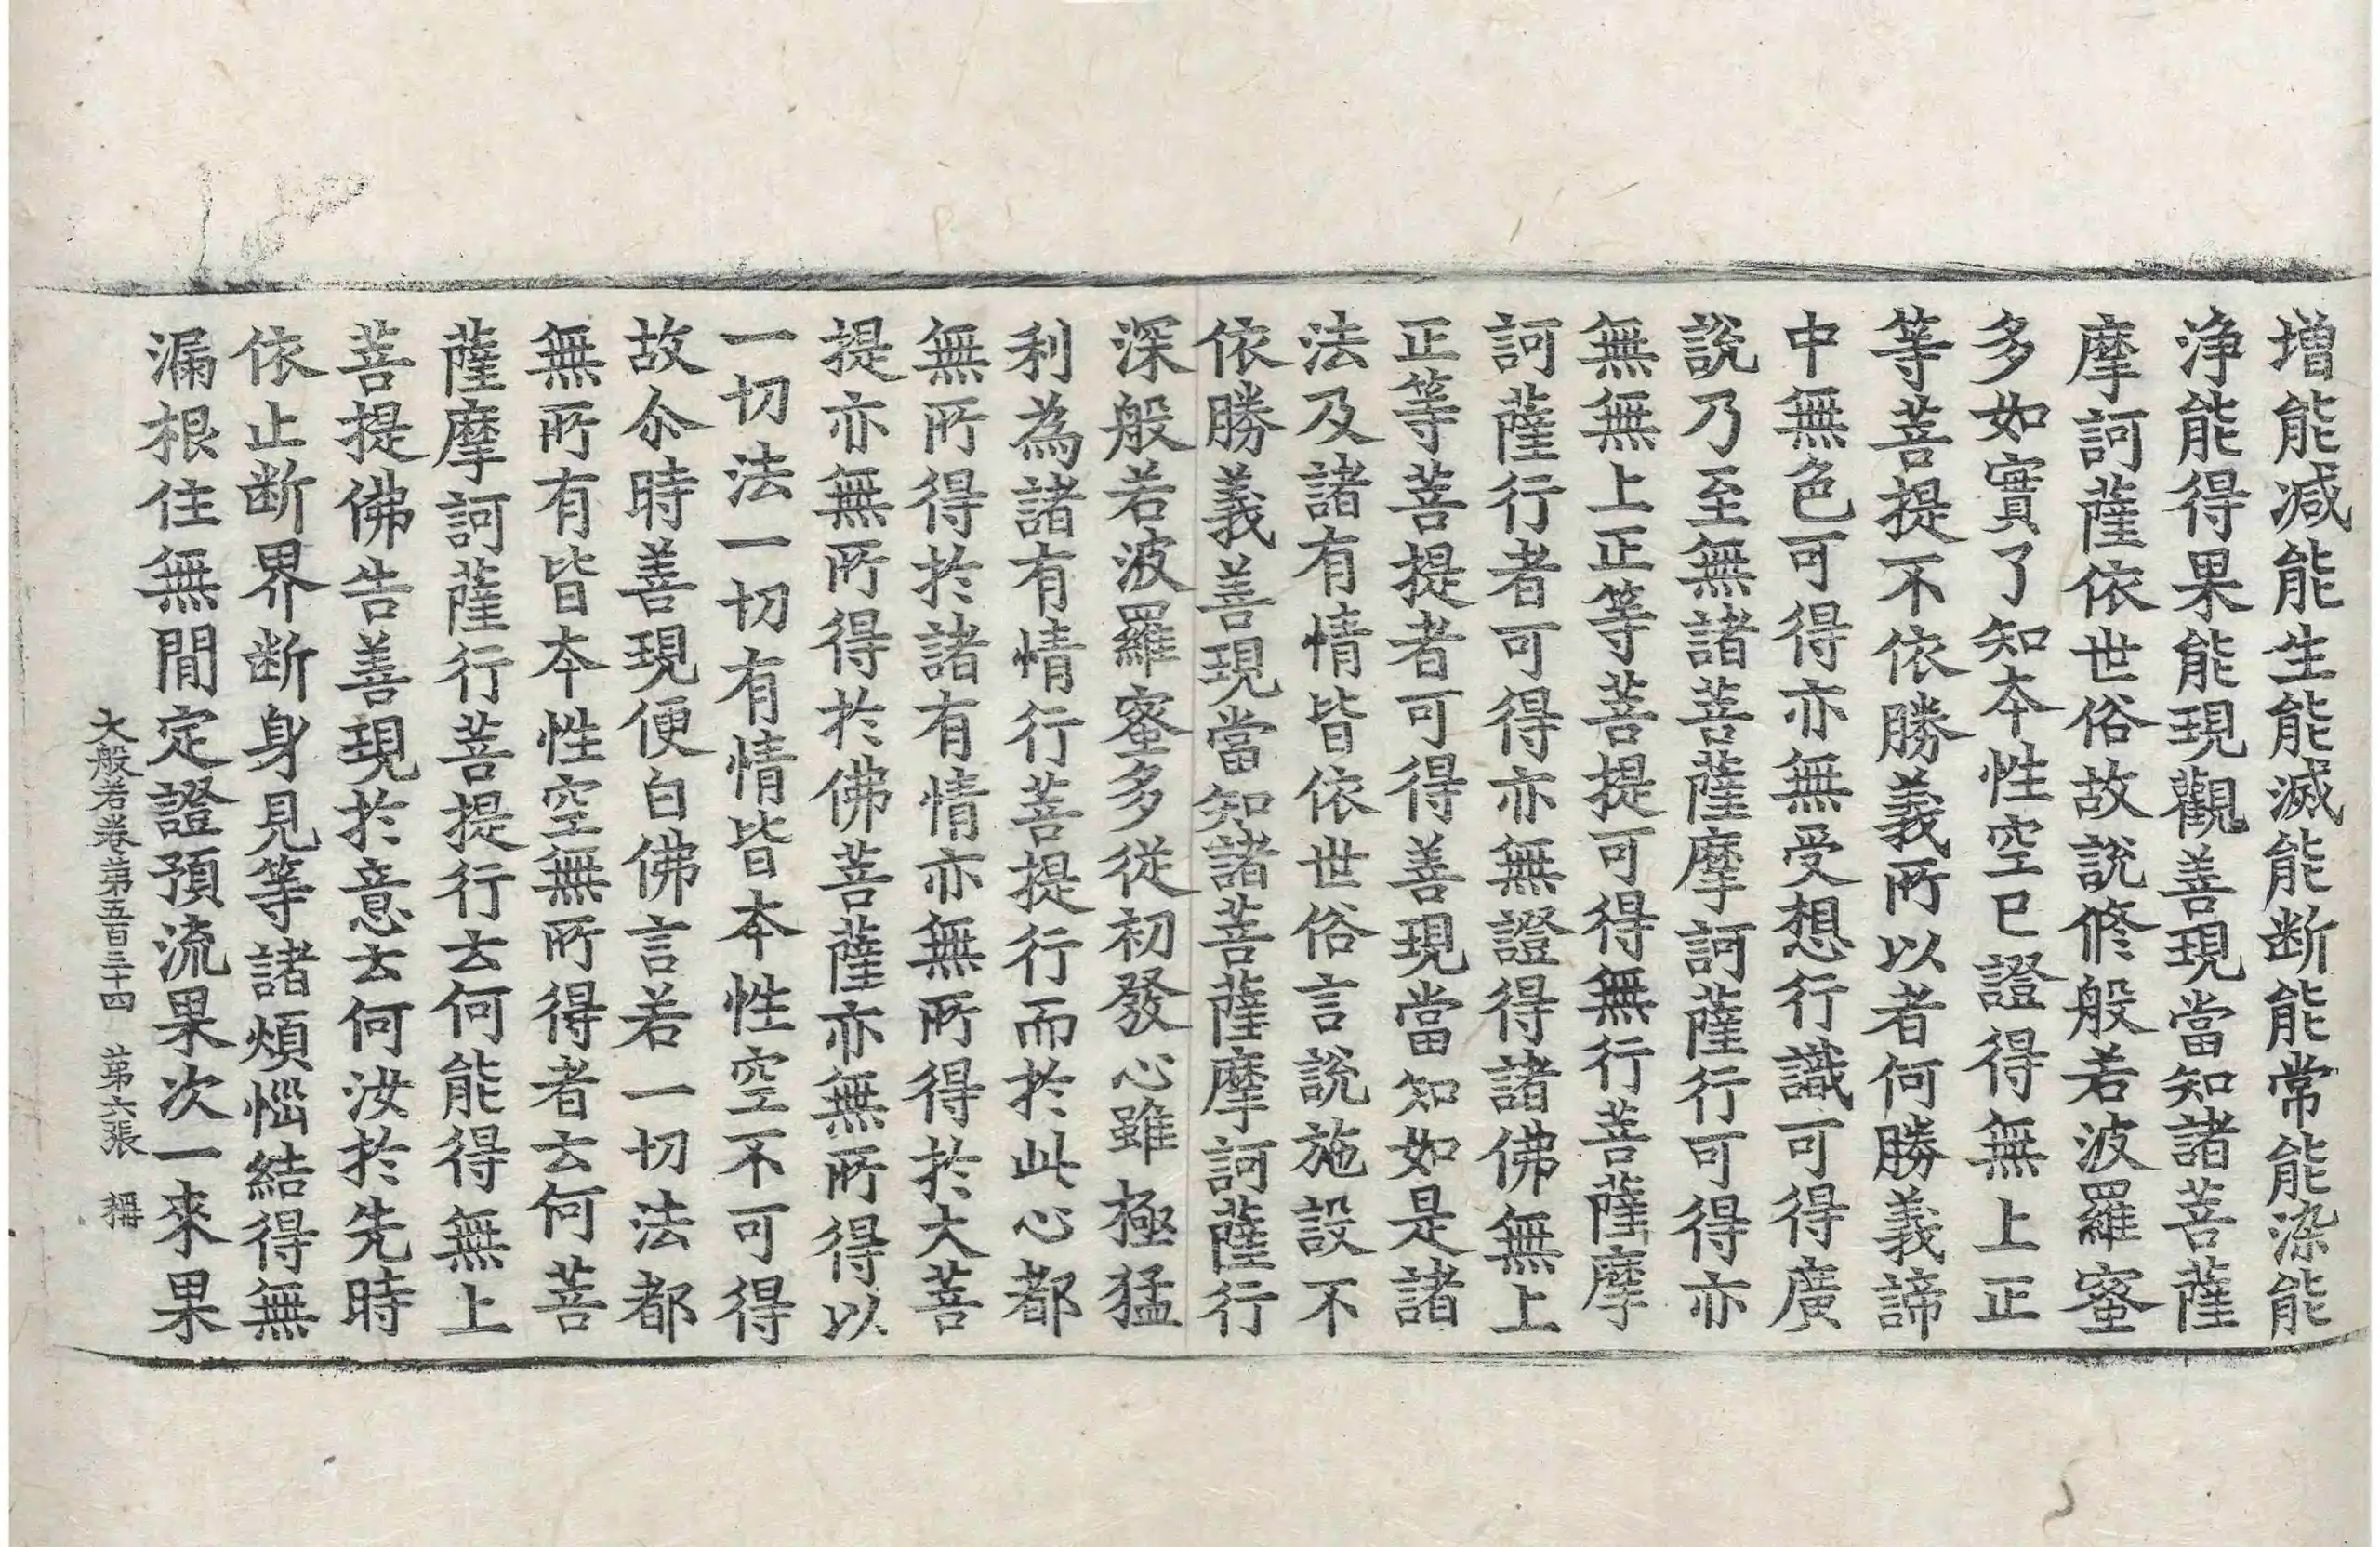 増能减能生能滅能断能常能染能
浄能得果能現觀善現當知諸菩薩
摩訶薩依世俗故說修般若波羅蜜
多如實了知本性空已證得無上正
等菩提不依勝義所以者何勝義諦
中無色可得亦無受想行識可得廣
說乃至無諸菩薩摩訶薩行可得亦
無無上正等菩提可得無行菩薩摩
訶薩行者可得亦無證得諸佛無上
正等菩提者可得善現當知如是諸
法及諸有情皆依世俗言說施設不
依勝義善現當知諸菩薩摩訶薩行
深般若波羅蜜多從初發心雖極猛
利為諸有情行菩提行而於此心都
無所得於諸有情亦無所得於大菩
提亦無所得於佛菩薩亦無所得以
一切法一切有情皆本性空不可得
故尒時善現便白佛言若一切法都
無所有皆本性空無所得者云何菩
薩摩訶薩行菩提行云何能得無上
菩提佛告善現於意云何汝於先時
依止断界断身見等諸煩惱結得無
漏根住無間定證預流果次一來果
大般若卷第五百三十四　第六張　稱